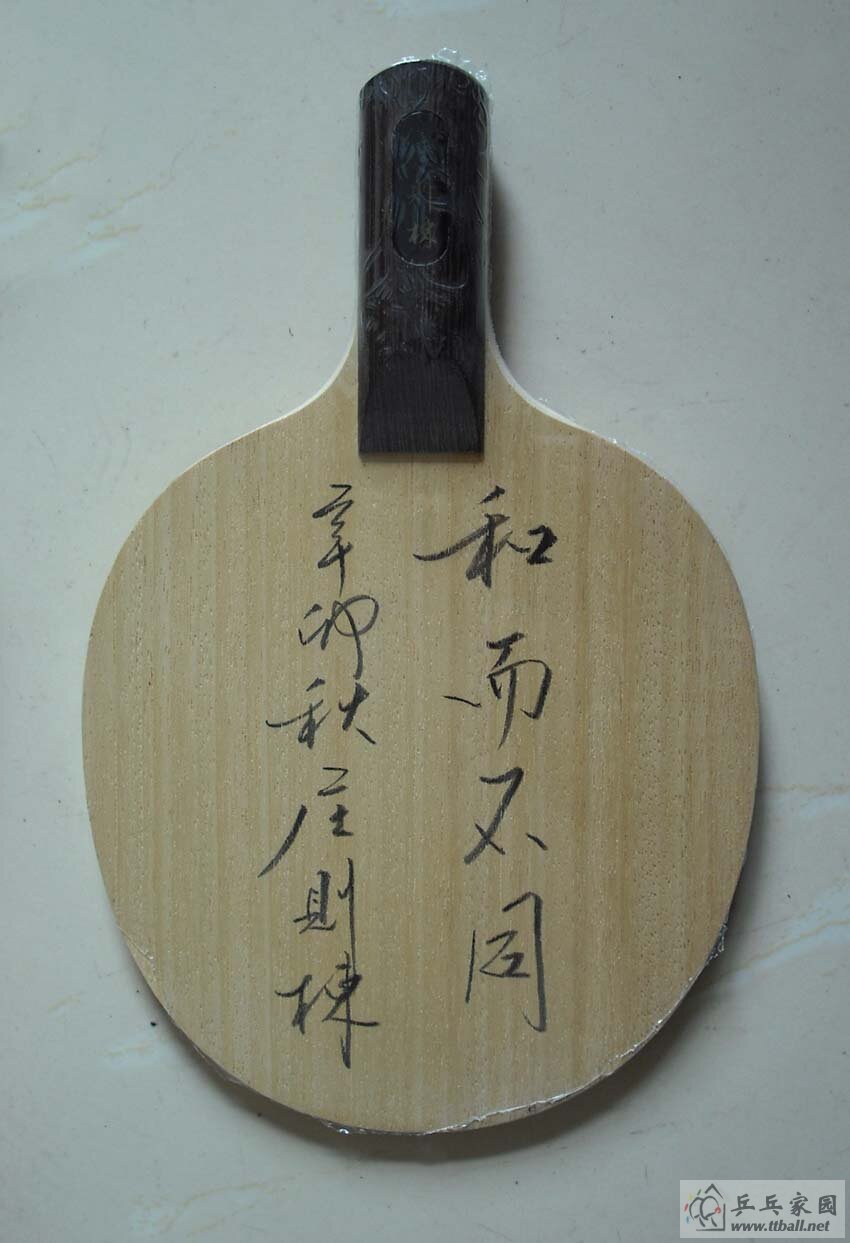 和而不同
辛卯秋庄則棟
棟
乒乓家园
www.ttball.net